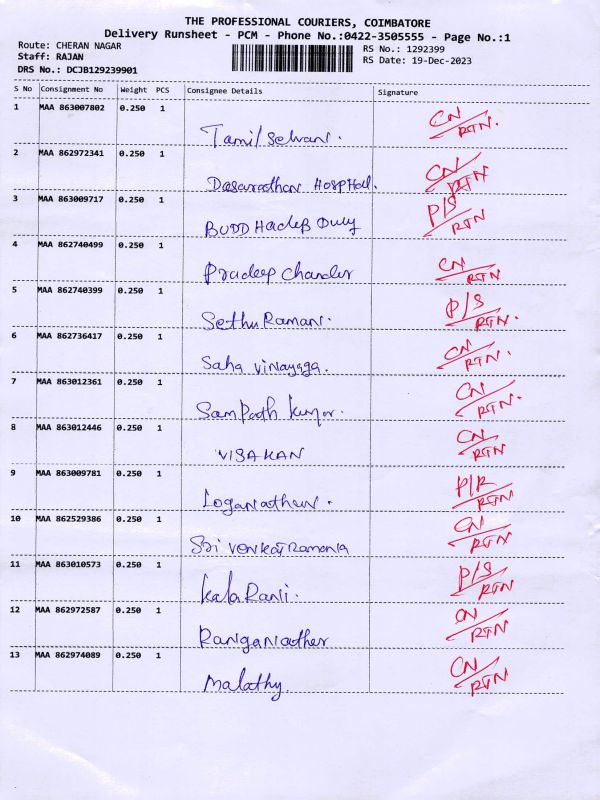 THE PROFESSIONAL COURIERS, COIMBATORE
Delivery Runsheet - PCM - Phone No.:0422-3505555 - Page No.:1
Route: CHERAN NAGAR
Staff: RAJAN
DRS No.: DCJB129239901
RS No.: 1292399
RS Date: 19-Dec-2023
S No Consignment No Weight PCS Consignee Details Signature
1 MAA 863007802 0.250 1
Tamil Selvan. CN/RTN.
2 MAA 862972341 0.250 1
Dasarathan Hospitall. CN/RTN
3 MAA 863009717 0.250 1
BUDDHadeB Duly P/S RTN
4 MAA 862740499 0.250 1
Pradeep Chander CN/RTN
5 MAA 862740399 0.250 1
Sethu Ramani. P/S RTN.
6 MAA 862736417 0.250 1
Saha Vinayaga. CN/RTN.
7 MAA 863012361 0.250 1
Sampath Kumar. CN/RTN.
8 MAA 863012446 0.250 1
VISAKAN CN/RTN
9 MAA 863009781 0.250 1
Loganathan. P/R RTN
10 MAA 862529386 0.250 1
Sri Venkatramania CN/RTN
11 MAA 863010573 0.250 1
Kala Rani. P/S RTN
12 MAA 862972587 0.250 1
Ranganather CN/RTN
13 MAA 862974089 0.250 1
Malathy. CN/RTN